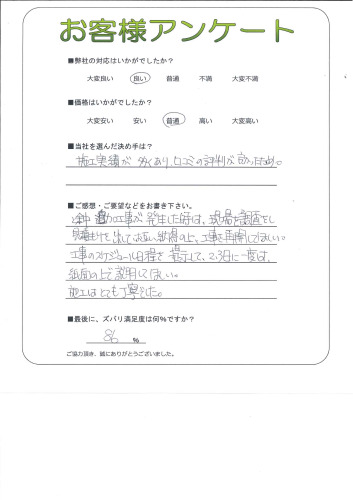 お客様アンケート
■弊社の対応はいかがでしたか？
大変良い 良い 普通 不満 大変不満
■価格はいかがでしたか？
大変安い 安い 普通 高い 大変高い
■当社を選んだ決め手は？
施工実績が多くあり、口コミの評判が良かったため。
■ご感想・ご要望などをお書き下さい。
工事が発生した時は、現場を調査をし
見積もりを出して 納得の上、工事を再開してほしい。
工事のスケジュール日程を提示して、2,3日に一度は、
紙面の上で説明してほしい。
施工はとても丁寧でした。
■最後に、ズバリ満足度は何%ですか？
86 %
ご協力頂き、誠にありがとうございました。